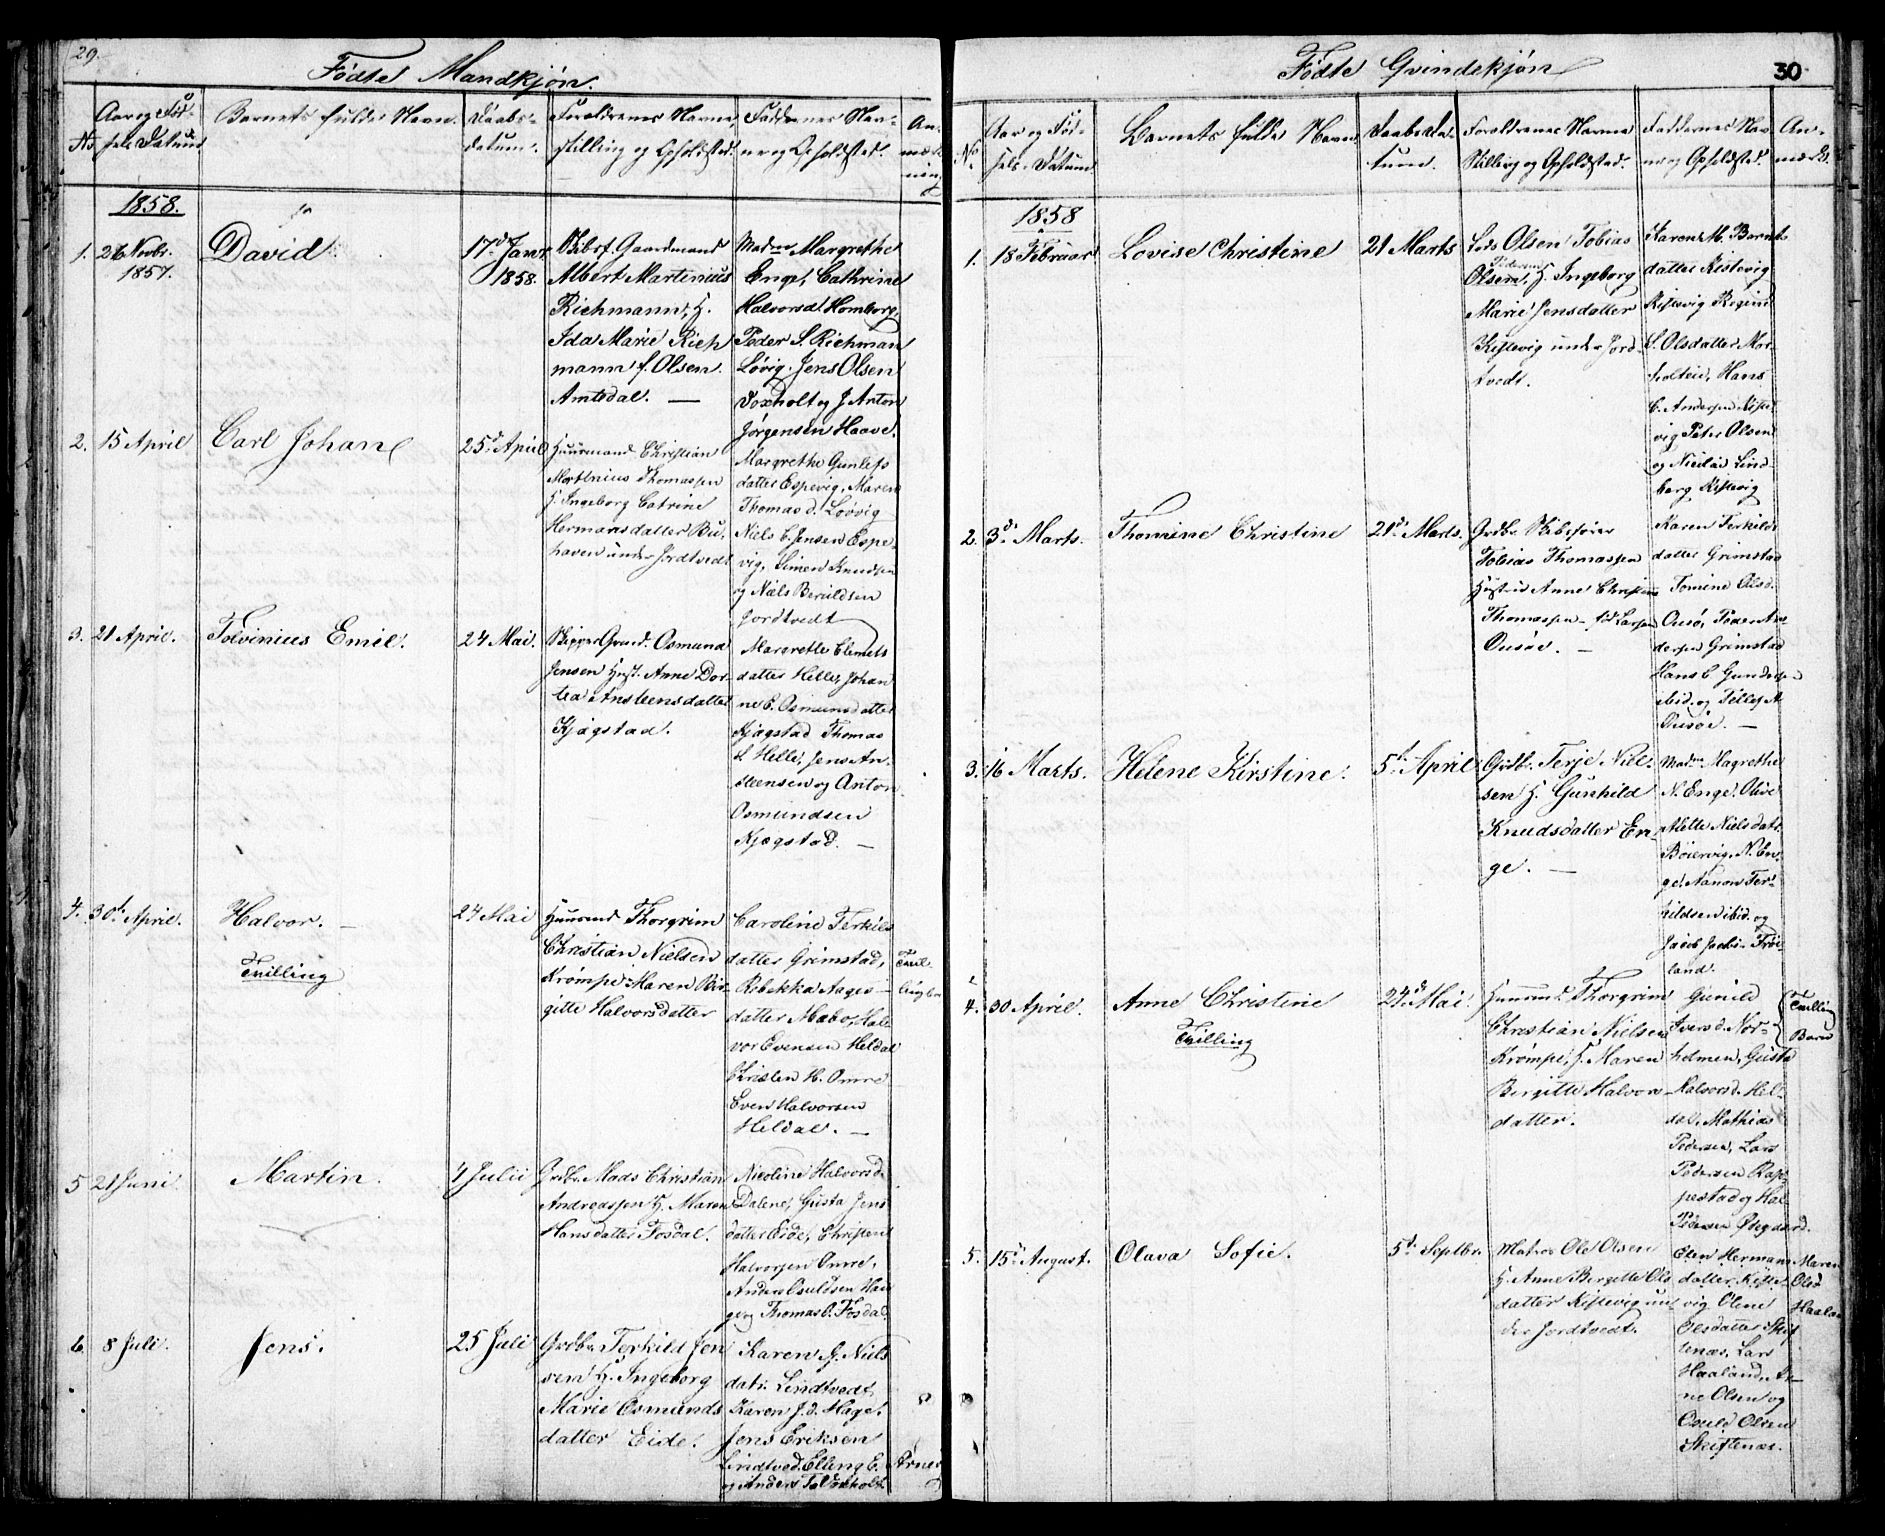 29.
Fødte Mandkjøn.
No
Aar og Fød-
sels Datum
Barnets fulde Navn.
Daabs-
datum.
Forældrenes Navne,
stilling og Opholdsted.
Faddernes Nav-
ne og Opholdsted.
An-
1858.
1.
26 Novbr.
1857.
David.
17d Janr.
1858.
Skibsf. Gaardmand
Albert Martinius
Richmann, H.
Ida Marie Rich
mann f. Olsen.
Amtedal. —
Madm Margrethe
Enge, Cathrine
Halvorsd. Homborg,
Peder S. Richman
Løvig. Jens Olsen
Doxholt og J. Anton
Jørgensen Haave.
2.
15 April
Carl Johan
25d April
Huusmand Christian
Mortenius Thomassen
H. Ingeborg Catrine
Hermansdatter Bu-
haven under Jordtvedt
Margrethe Gunlefs
datter Espevig, Maren
Thomasd. Løvvig
Niels C. Jensen Espe-
vig, Simen Knudsen
og Niels Beruldsen
Jordtvedt
3.
21 April.
Tolvinius Emil.
24 Mai.
Skipper Grund. Osmund
Jensen Hust. Anne Dor-
tea Ansteensdatter
Kjøgstad.
Margrethe Clemets
datter Helle, Johan
ne E. Osmunsdatter
Kjøgstad Thomas
L. Helle, Jens An-
steensen og Anton
Osmundsen
Kjøgstad. —
4.
30t April.
Halvor. —
Tvilling
24 Mai
Huusmd Thorgrim
Christian Nielsen
Krømpe Maren Bir-
gitte Halvorsdatter
Caroline Terkils
datter Grimstad,
Rebekka Aages —
datter Møbo, Hal
vor Evensen Heldal
Christen H. Omre
Even Halvorsen
Heldal. —
Tvil
5
21 Juni
Martin.
4 Julii
Grdbr. Mads Christian
Andreassen H. Maren
Hansdatter Fosdal.
Nicoline Halvorsd.
Dalene, Gusta Jens
datter Eide, Christen
Halvorsen Omre,
Anders Osuldsen Hau
ge og Thomas O. Fosdal.
6.
8 Juli.
Jens.
25 Juli
Grdbr. Terkild Jen
sen H. Ingeborg
Marie Osmunds
datter Eide.
Karen G. Niels
datr. Lindtvedt,
Karen J. d. Hage.
Jens Eriksen
Lindtved. Elling E.
Fødte Qvindekjøn
30
No.
Aar og Fød-
sels-Datum
Barnets fulde Navn
Daabsda-
tum.
Forældrenes Navne
Stilling og Opholdsted.
Faddernes Nav
ne og Opholdsted.
An-
mærk.
1858
1.
18 Februar
Lovise Christine
21 Marts
Lods Olsen Tobias
Pedersen
Olsen, H. Ingeborg
Marie Jensdatter
Kistevig under Jord-
tvedt.
Karen M. Bernt
datter Kistevig
S. Olsdatter Mor-
holteid, Hans
C. Andersen Kiste
vig Peter Olsen
og Nicolai Lind-
berg Kistevig
2.
3di Marts.
Thomine Christine
21d Marts.
Grdbr. Skibsfører
Tobias Thomassen
Hustrue Anne Christine
Thomassen — fød Larsen
Ousøe. —
Karen Terkilds
datter Grimstad
Tomine Olsd.
Ousø, Peder An-
dersen Grimstad
Hans C. Gundersen
ibid. og Tellef A.
Ousøe. —
3.
16 Marts.
Helene Kirstine.
5t April
Grdbr. Terje Niel-
sen H. Gunhild
Knudsdatter En-
ge. —
Madm. Magrethe
N. Enge. Olive
Alette Nielsdatr.
Bøiervig, N. En-
ge. Aanon Ter-
kildsen ibid. og
Jacob Jacobs. Frøi-
land.
4.
30 April.
Anne Christine
Tvilling
24d Mai.
Huusmd. Thorgrim
Christian Nielsen
Krømpe, H. Maren
Bergitte Halvors-
datter.
Gunild
Iversd. Nor-
helmen, Gusta
Halvorsd. Hel-
dal, Mathias
Pedersen, Lars
Pedersen Rop-
pestad og Hal
Pedersen Øvegaard.
Tvilling
Barn
5.
15d August.
Olava Sofie.
5t Septbr.
Matros Ole Olsen
H. Anne Bergette Ols
datter Kistevig un
der Jordtvedt.
Elen Hermans
datter Kiste-
vig Olene
Olsdatter Skif
tenæs, Lars
Haaland, Ar-
ne Olsen og
Osuld Olsen
Skiftenæs.
Maren
Olsd
Haalan